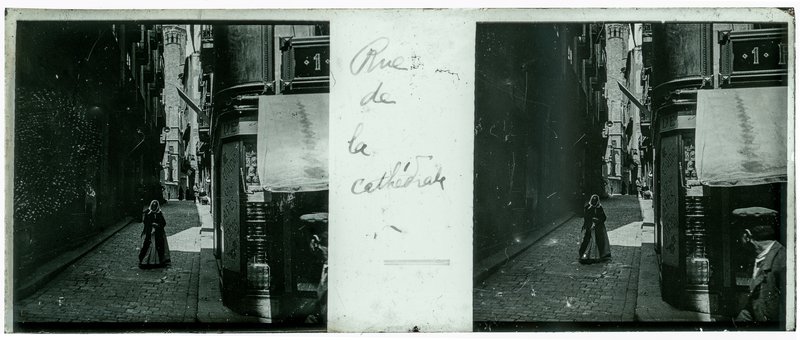 ·1·
Rue
de
la
cathédrale
·1